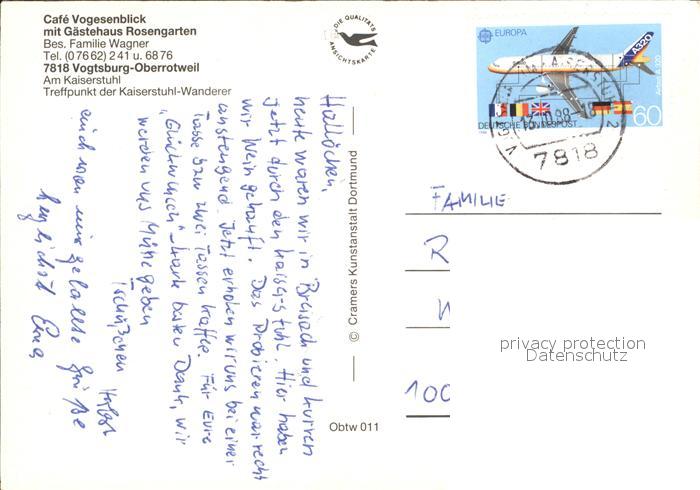 Café Vogesenblick
mit Gästehaus Rosengarten
Bes. Familie Wagner
Tel. (0 76 62) 241 u. 68 76
7818 Vogtsburg-Oberrotweil
Am Kaiserstuhl
Treffpunkt der Kaiserstuhl-Wanderer
DIE QUALITÄTS
ANSICHTSKARTE
EUROPA
A320
Airbus A 320
DEUTSCHE BUNDESPOST
60
7818
Hallöchen,
heute waren wir in Breisach und kurven
jetzt durch den Kaiserstuhl. Hier haben
wir Wein gekauft. Das Probieren war recht
anstrengend. Jetzt erholen wir uns bei einer
Tasse bzw zwei Tassen Kaffee. Für Eure
"Glückwunsch"-Karte besten Dank, wir
werden uns Mühe geben
Tschüßchen
auch von mir
Grüße
herzlichst
© Cramers Kunstanstalt Dortmund
Obtw 011
FAMILIE
R
100
privacy protection
Datenschutz